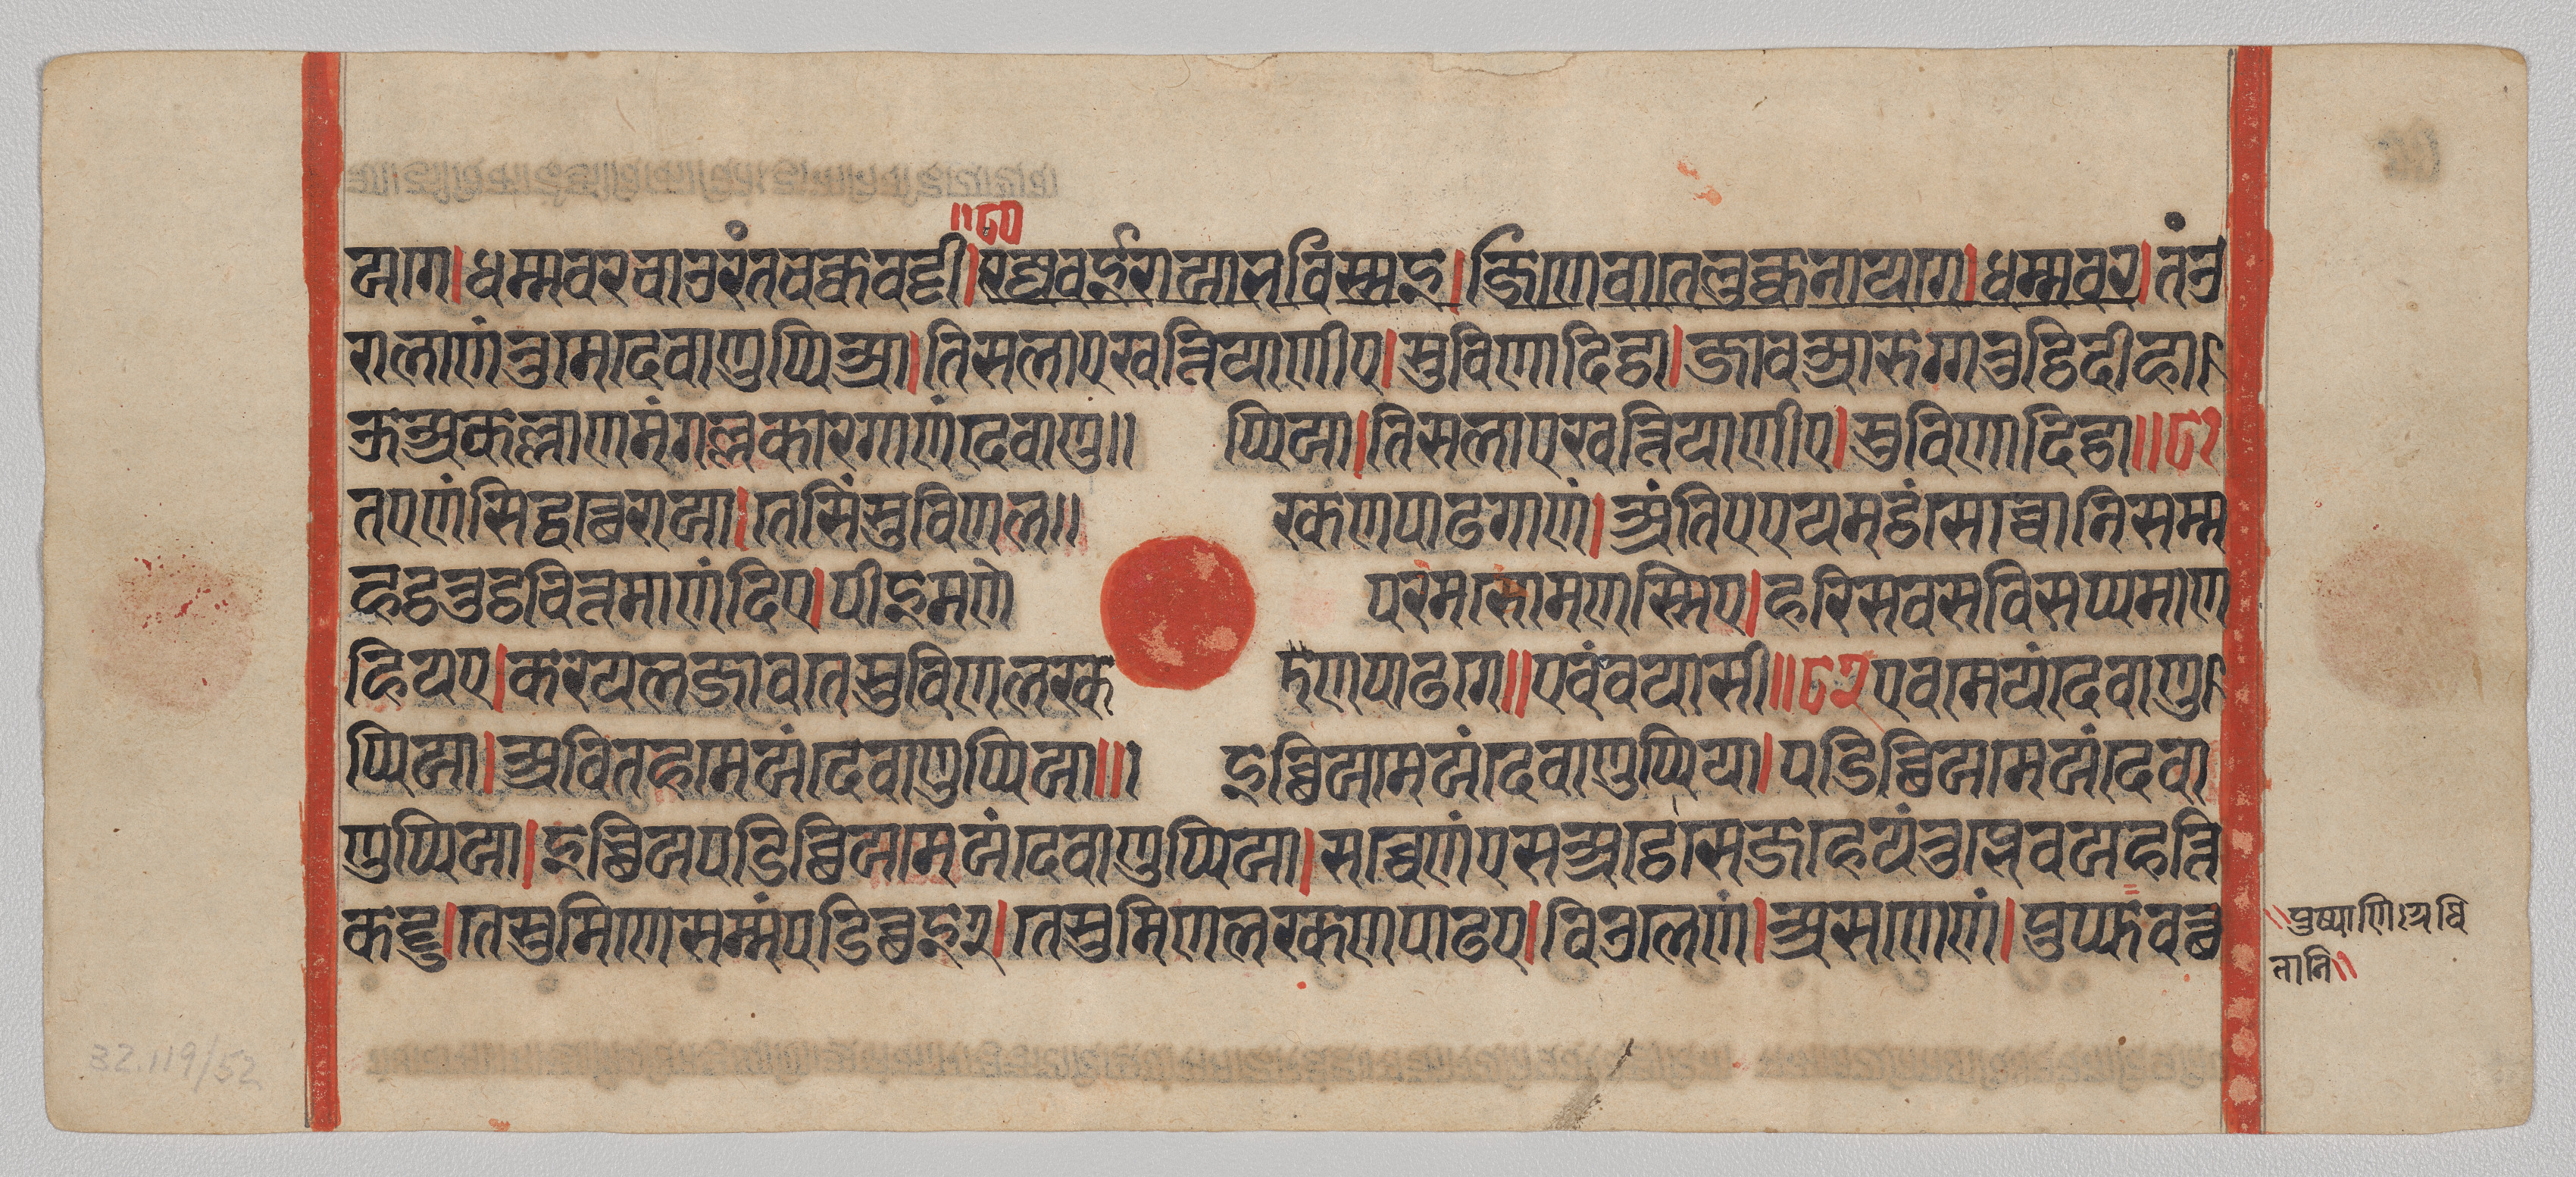 यगे।धम्मवरचाउरंतचक्कवट्टी।॥८०रज्जवईरायाभविस्सइ।जिणेवातेलुक्कनायगे।धम्मवर।तंउ
रालाणंतुमेदेवाणुप्पिआ।तिसलाएखत्तियाणीए।सुविणादिट्ठा।जावआरुग्गतुट्ठिदीहा
उअकल्लाणमंगल्लकारगाणंदेवाणु॥ प्पिया।तिसलाएखत्तियाणीए।सुविणादिट्ठा॥८१
तएणंसिद्धत्थेराया।तेसिंसुविणल॥ रकणपाढगाणं।अंतिएएयमट्ठंसोच्चानिसम्म
हट्ठतुट्ठचित्तमाणंदिए।पीइमणे परमसोमणस्सिए।हरिसवसविसप्पमाण
हियए।करयलजावतेसुविणलरक णपाढगे॥एवंवयासी॥८२एवमेयंदेवाणु
प्पिया।अवितहमेयंदेवाणुप्पिया॥ इच्छियमेयंदेवाणुप्पिया।पडिच्छियमेयंदेवा
णुप्पिया।इच्छियपडिच्छियमेयंदेवाणुप्पिया।सच्चेणंएसअट्ठेसेजहेयंतुब्भेवयहत्ति
कट्टु।तेसुमिणेसम्मंपडिच्छइ२।तेसुमिणलरकणपाढए।विउलेणं।असणेणं।पुप्फवत्थ
॥पुष्पाणिअग्रथि
तानि॥
32.119/52